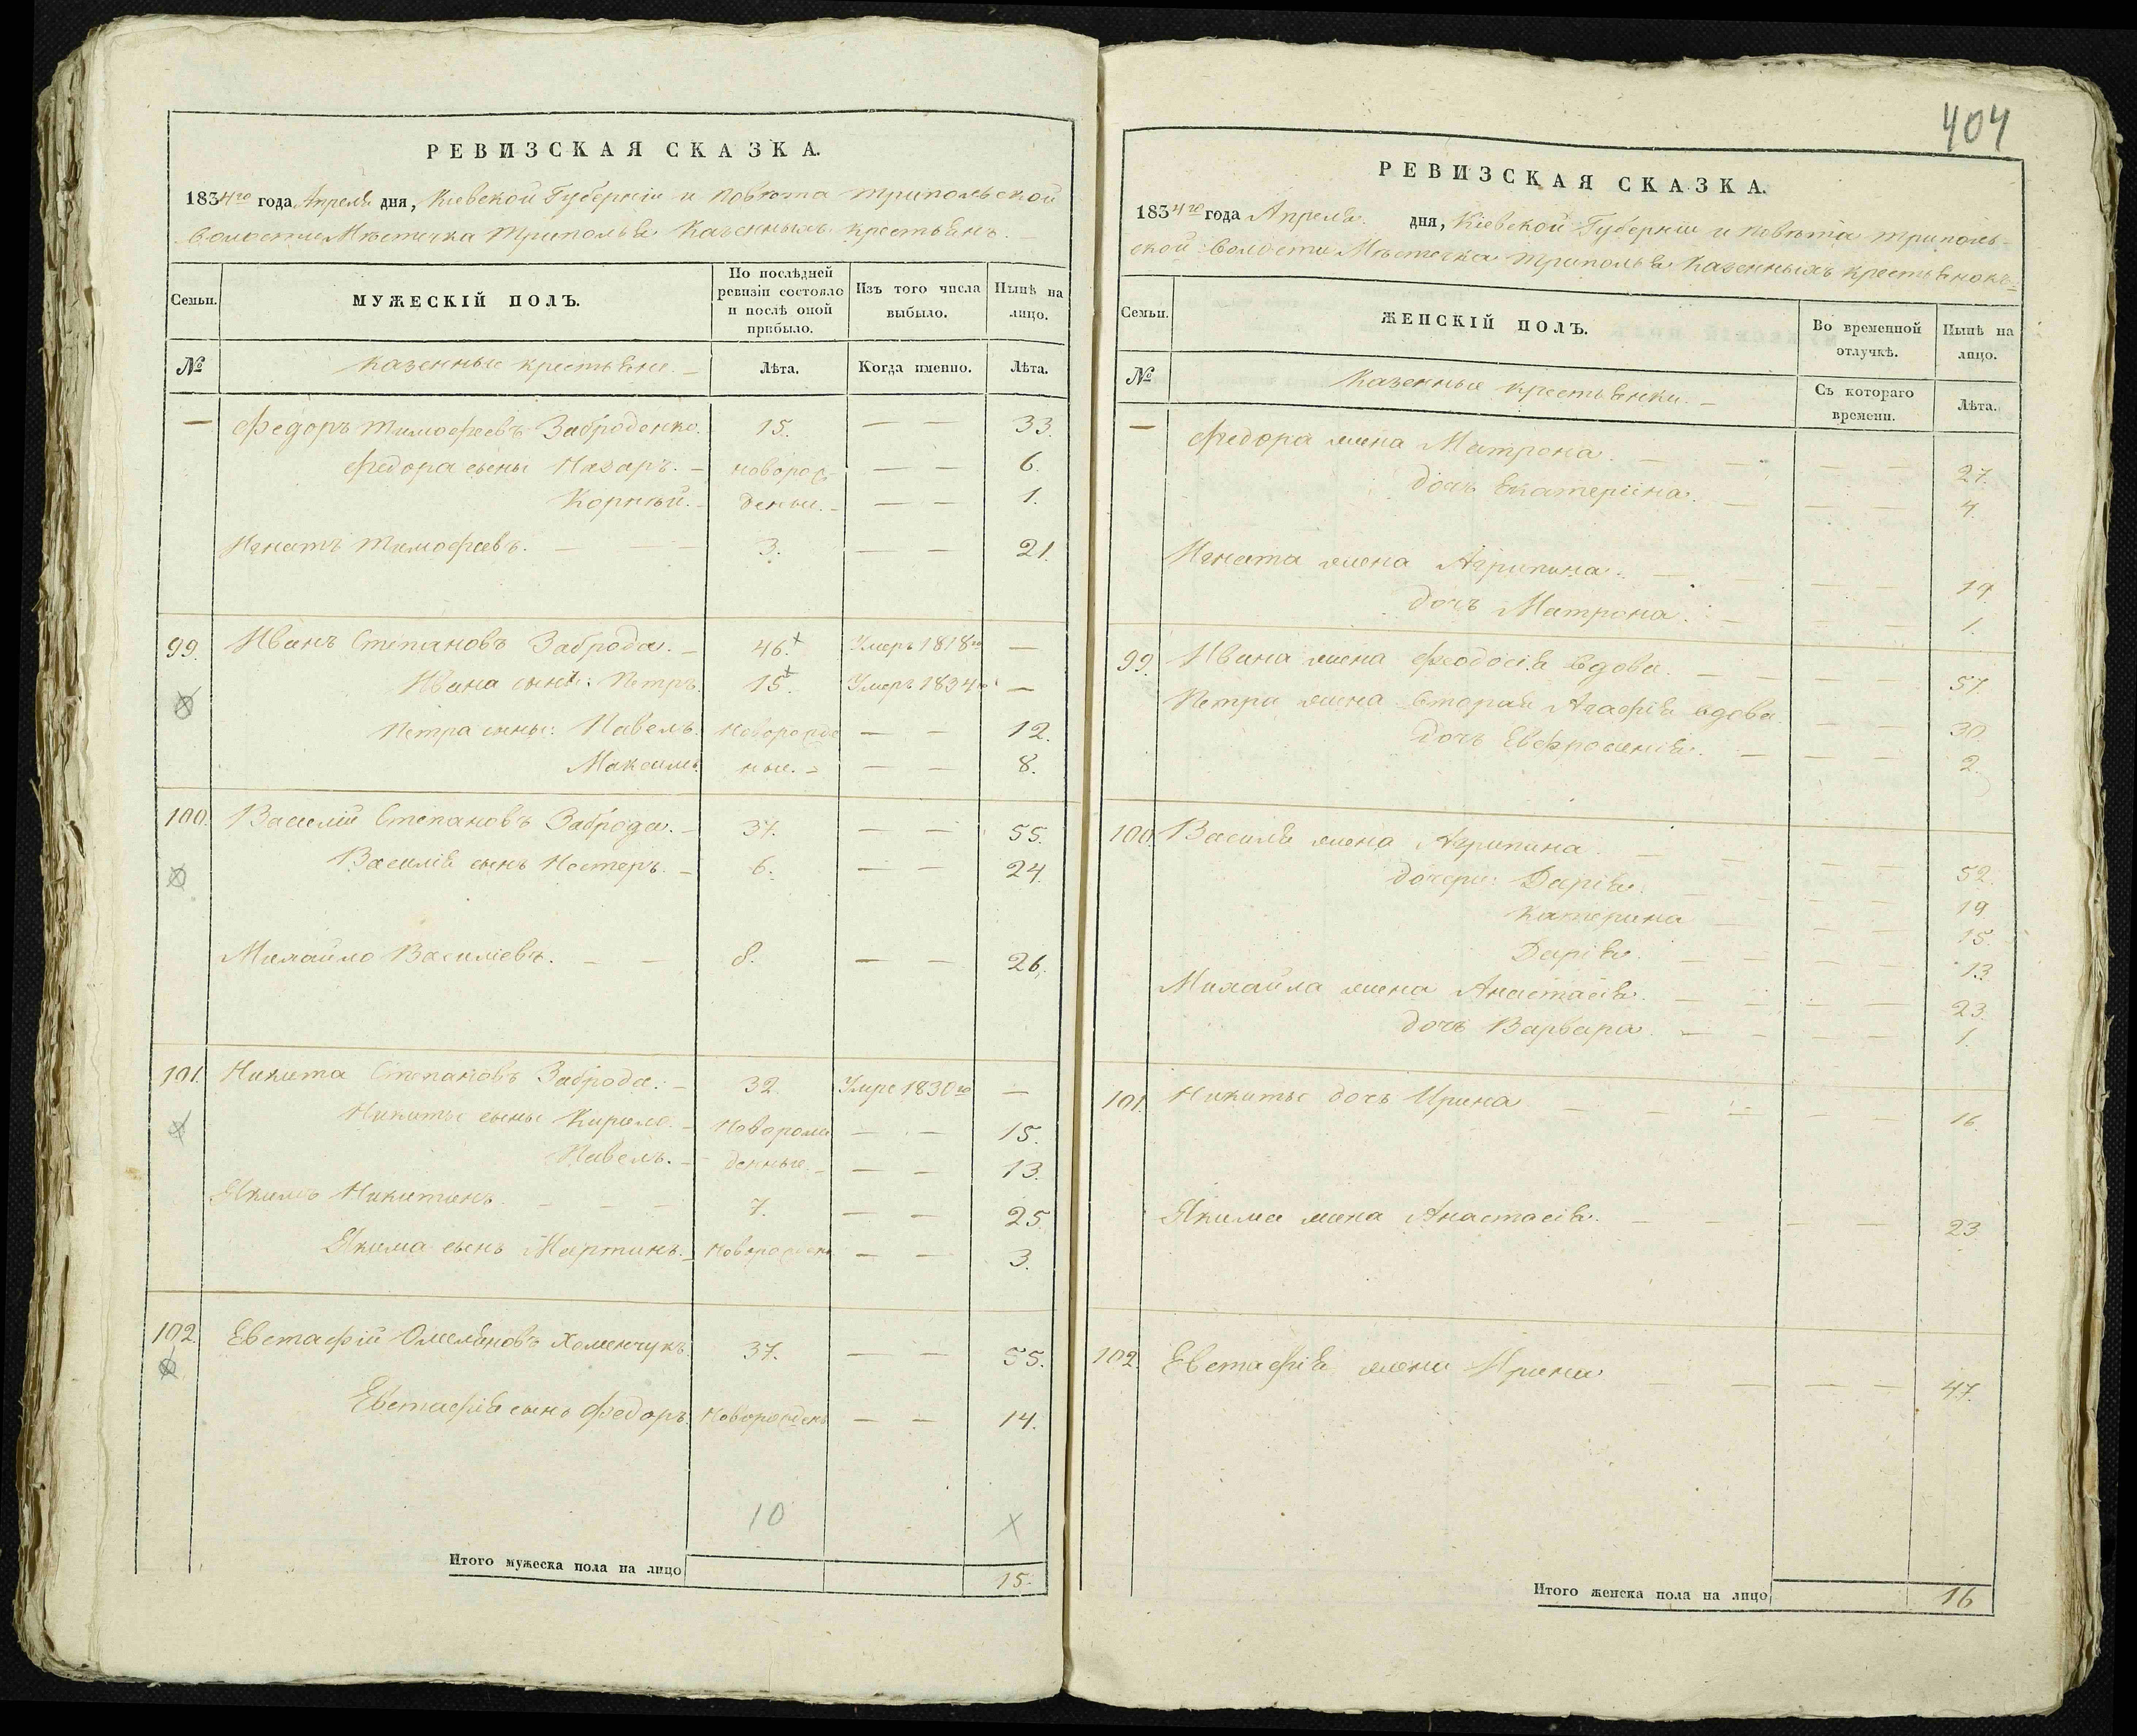 РЕВИЗСКАЯ СКАЗКА.
1834го года Апреля дня, Кіевской Губерніи и Повѣта Трипольской
Волости Мѣстечка Триполья Казенныхъ крестьянъ.
Семьи.
МУЖЕСКІЙ ПОЛЪ.
По послѣдней ревизіи состояло и послѣ оной прибыло.
Изъ того числа выбыло.
Нынѣ на лицо.
№
Казенные крестьяне.
Лѣта.
Когда именно.
Лѣта.
— Федоръ Тимофеевъ Заброденко. 15. — — 33.
Федора сыны Назаръ. — новорож — — 6.
Корнѣй. — денные. — — — 1.
Игнатъ Тимофеевъ. — — — 3. — — 21.
99. Иванъ Степановъ Заброда. — 46. Умеръ 1818го —
Ивана сынъ: Петръ. 15. Умеръ 1834го —
Петра сыны: Павелъ. Новорожде — — 12.
Максимъ. ные. — — — 8.
100. Василій Степановъ Заброда. — 37. — — 55.
Василія сынъ Нестеръ. — 6. — — 24.
Михайло Василіевъ. — — 8. — — 26.
101. Никита Степановъ Заброда. — 32. Умре 1830го —
Никиты сыны Кирило. — Новорож — — 15.
Павелъ. — денные. — — — 13.
Якимъ Никитинъ — — — 7. — — 25.
Якима сынъ Мартинъ. — Новорожден — — 3.
102. Евстафій Омеляновъ Хоменчукъ. 37. — — 55.
Евстафія сынъ Федоръ. Новорожден — — 14.
10 х
Итого мужеска пола на лицо 15.
404
РЕВИЗСКАЯ СКАЗКА.
1834го года Апреля. дня, Кіевской Губерніи и Повѣта Триполь-
ской Волости Мѣстечка Триполья Казенныхъ крестьянокъ
Семьи.
ЖЕНСКІЙ ПОЛЪ.
Во временной отлучкѣ.
Нынѣ на лицо.
№
Казенные крестьянки. —
Съ котораго времени.
Лѣта.
— Федора жена Матрона. — — — — 27.
дочь Екатерина. — — — — 4.
Игната жена Агрипина. — — — 19.
дочь Матрона. — — — 1.
99. Ивана жена Феодосія вдова. — — — — 57.
Петра жена вторая Агафія вдова. — — 30.
дочь Евфросинія. — — — 2.
100. Василя жена Агрипина. — — — — 52.
дочери: Дарія. — — — — 19.
Катерина — — — — 15.
Дарія. — — — — 13.
Михайла жена Анастасія. — — — — 23.
дочь Варвара. — — — — 1.
101. Никиты дочь Ирина — — — — — 16.
Якима жена Анастасія. — — — — 23.
102. Евстафія жена Ирина — — — — 47.
Итого женска пола на лицо 16